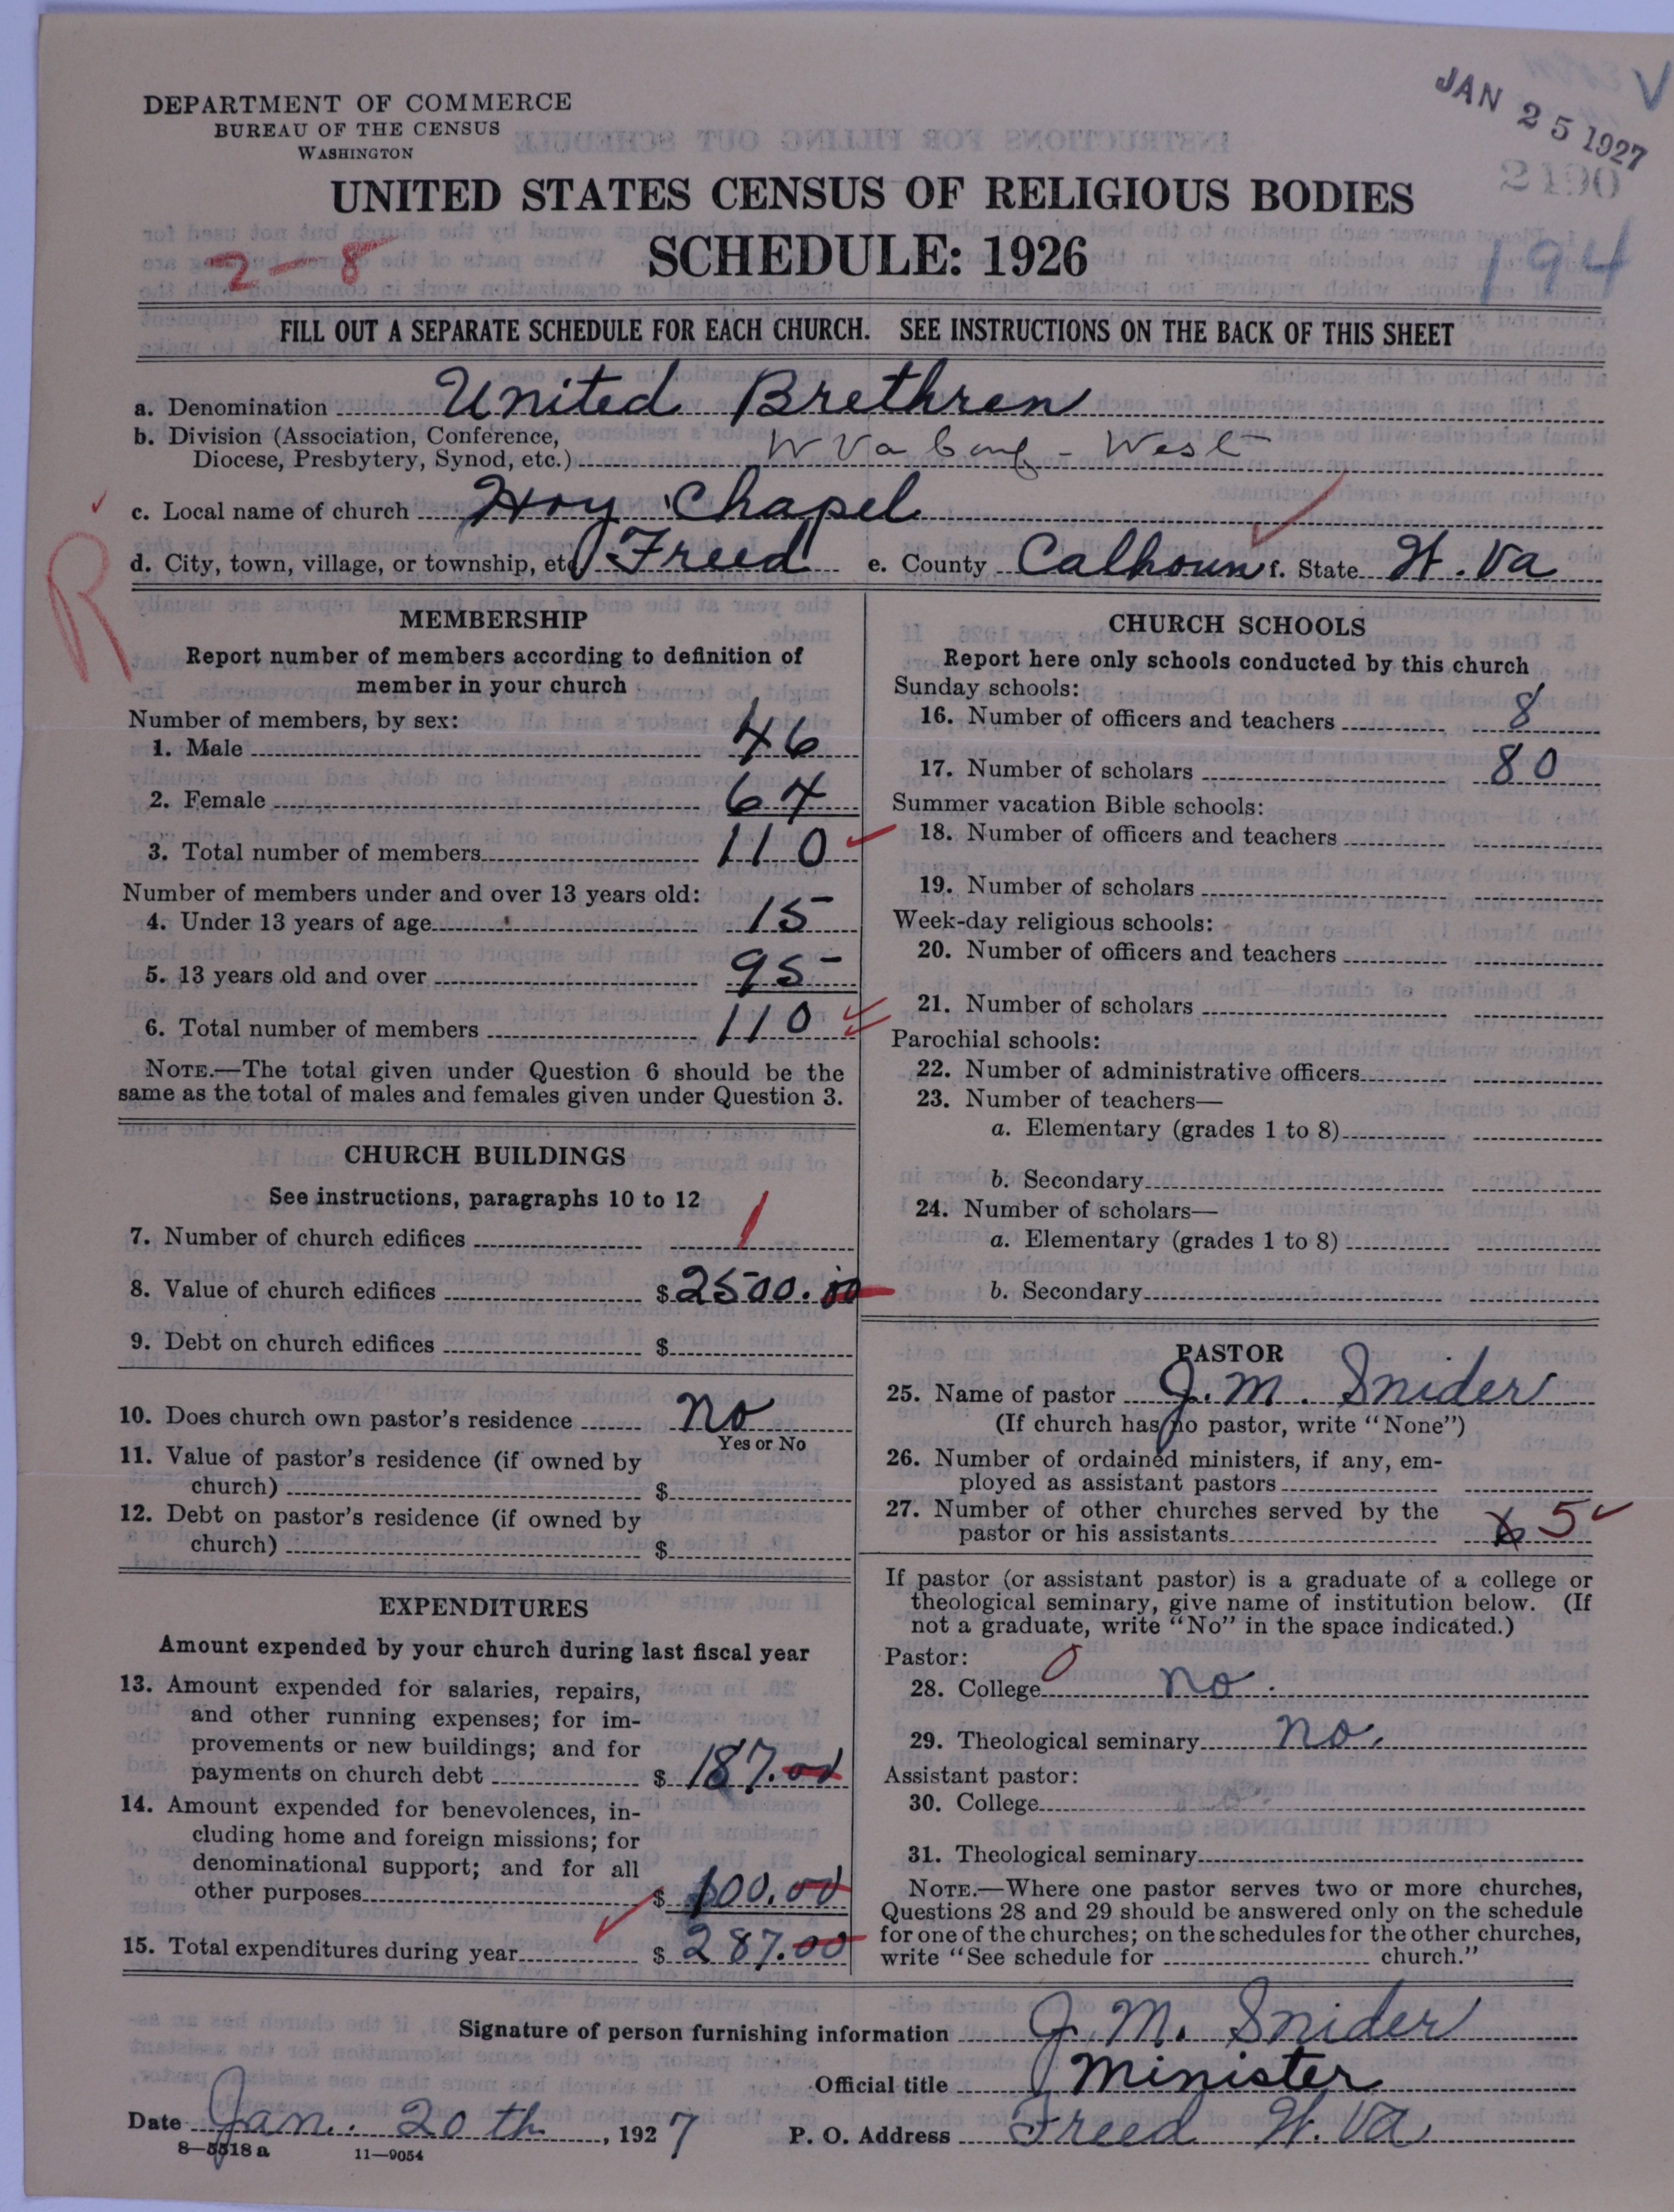 DEPARTMENT OF COMMERCE
BUREAU OF THE CENSUS
WASHINGTON
JAN 25 1927
2190
194
UNITED STATES CENSUS OF RELIGIOUS BODIES
SCHEDULE: 1926
2-8
FILL OUT A SEPARATE SCHEDULE FOR EACH CHURCH. SEE INSTRUCTIONS ON THE BACK OF THIS SHEET
a. Denomination United Brethren
b. Division (Association, Conference,
Diocese, Presbytery, Synod, etc.) W Va Conf - West
c. Local name of church Hoy Chapel
R
d. City, town, village, or township, etc. Freed e. County Calhoun f. State W. Va
MEMBERSHIP
Report number of members according to definition of
member in your church
Number of members, by sex:
1. Male 46
2. Female 64
3. Total number of members 110
Number of members under and over 13 years old:
4. Under 13 years of age 15
5. 13 years old and over 95
6. Total number of members 110
NOTE.—The total given under Question 6 should be the
same as the total of males and females given under Question 3.
CHURCH BUILDINGS
See instructions, paragraphs 10 to 12
7. Number of church edifices 1
8. Value of church edifices $ 2500.00
9. Debt on church edifices $
10. Does church own pastor's residence no
Yes or No
11. Value of pastor's residence (if owned by
church) $
12. Debt on pastor's residence (if owned by
church) $
EXPENDITURES
Amount expended by your church during last fiscal year
13. Amount expended for salaries, repairs,
and other running expenses; for im-
provements or new buildings; and for
payments on church debt $ 187.00
14. Amount expended for benevolences, in-
cluding home and foreign missions; for
denominational support; and for all
other purposes $ 100.00
15. Total expenditures during year $ 287.00
CHURCH SCHOOLS
Report here only schools conducted by this church
Sunday schools:
16. Number of officers and teachers 8
17. Number of scholars 80
Summer vacation Bible schools:
18. Number of officers and teachers
19. Number of scholars
Week-day religious schools:
20. Number of officers and teachers
21. Number of scholars
Parochial schools:
22. Number of administrative officers
23. Number of teachers—
a. Elementary (grades 1 to 8)
b. Secondary
24. Number of scholars—
a. Elementary (grades 1 to 8)
b. Secondary
PASTOR
25. Name of pastor J. M. Snider
(If church has no pastor, write "None")
26. Number of ordained ministers, if any, em-
ployed as assistant pastors
27. Number of other churches served by the
pastor or his assistants 6 5
If pastor (or assistant pastor) is a graduate of a college or
theological seminary, give name of institution below. (If
not a graduate, write "No" in the space indicated.)
Pastor: 0
28. College no.
29. Theological seminary no.
Assistant pastor:
30. College
31. Theological seminary
NOTE.—Where one pastor serves two or more churches,
Questions 28 and 29 should be answered only on the schedule
for one of the churches; on the schedules for the other churches,
write "See schedule for church."
Signature of person furnishing information J. M. Snider
Official title Minister
Date Jan. 20th, 1927 P. O. Address Freed W. Va
8-5518 a 11-9054